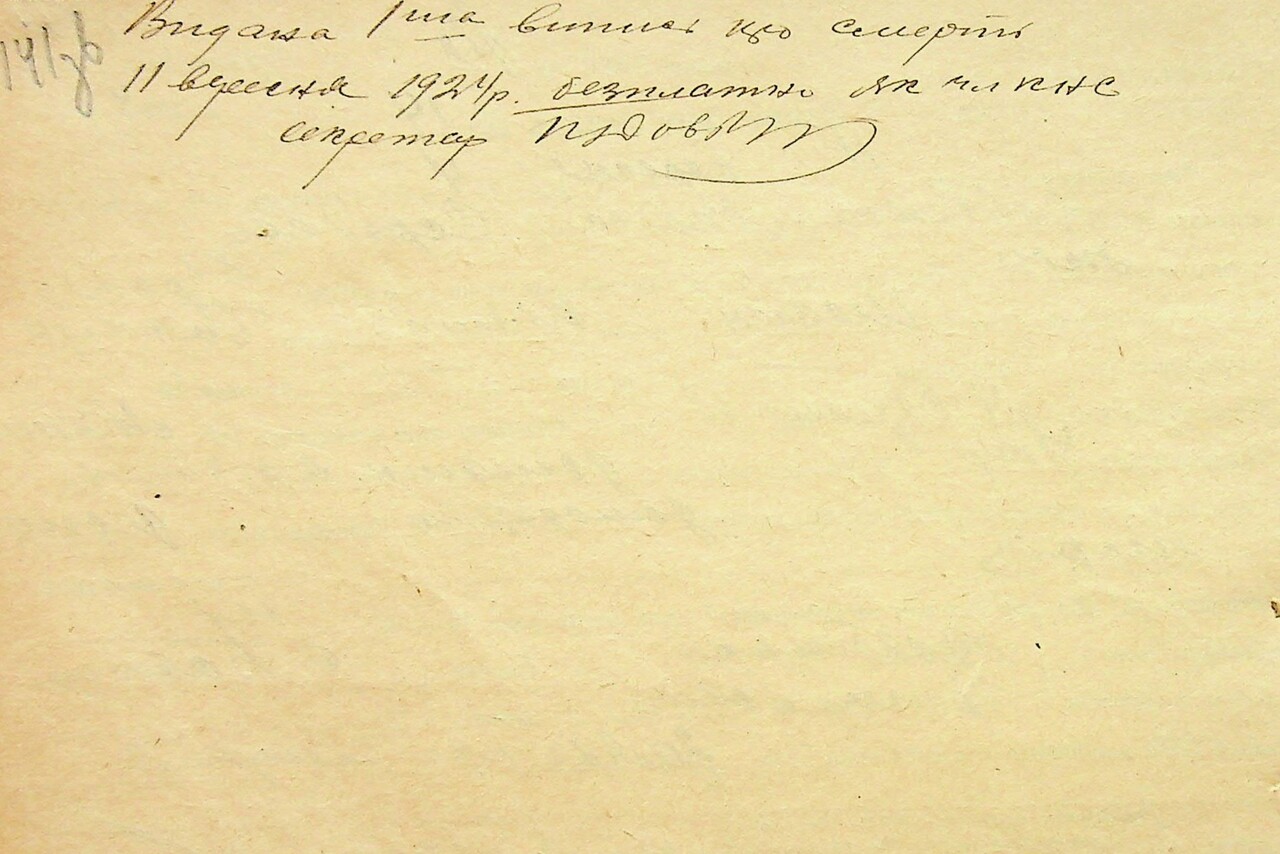 Видана 1ша випись про смерть
11 вересня 1924р. безплатно як член КНС
секретар